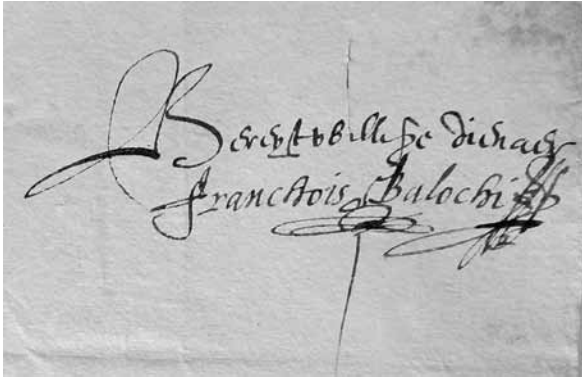 Bereytwillighe dienaer
Franchois Balochi